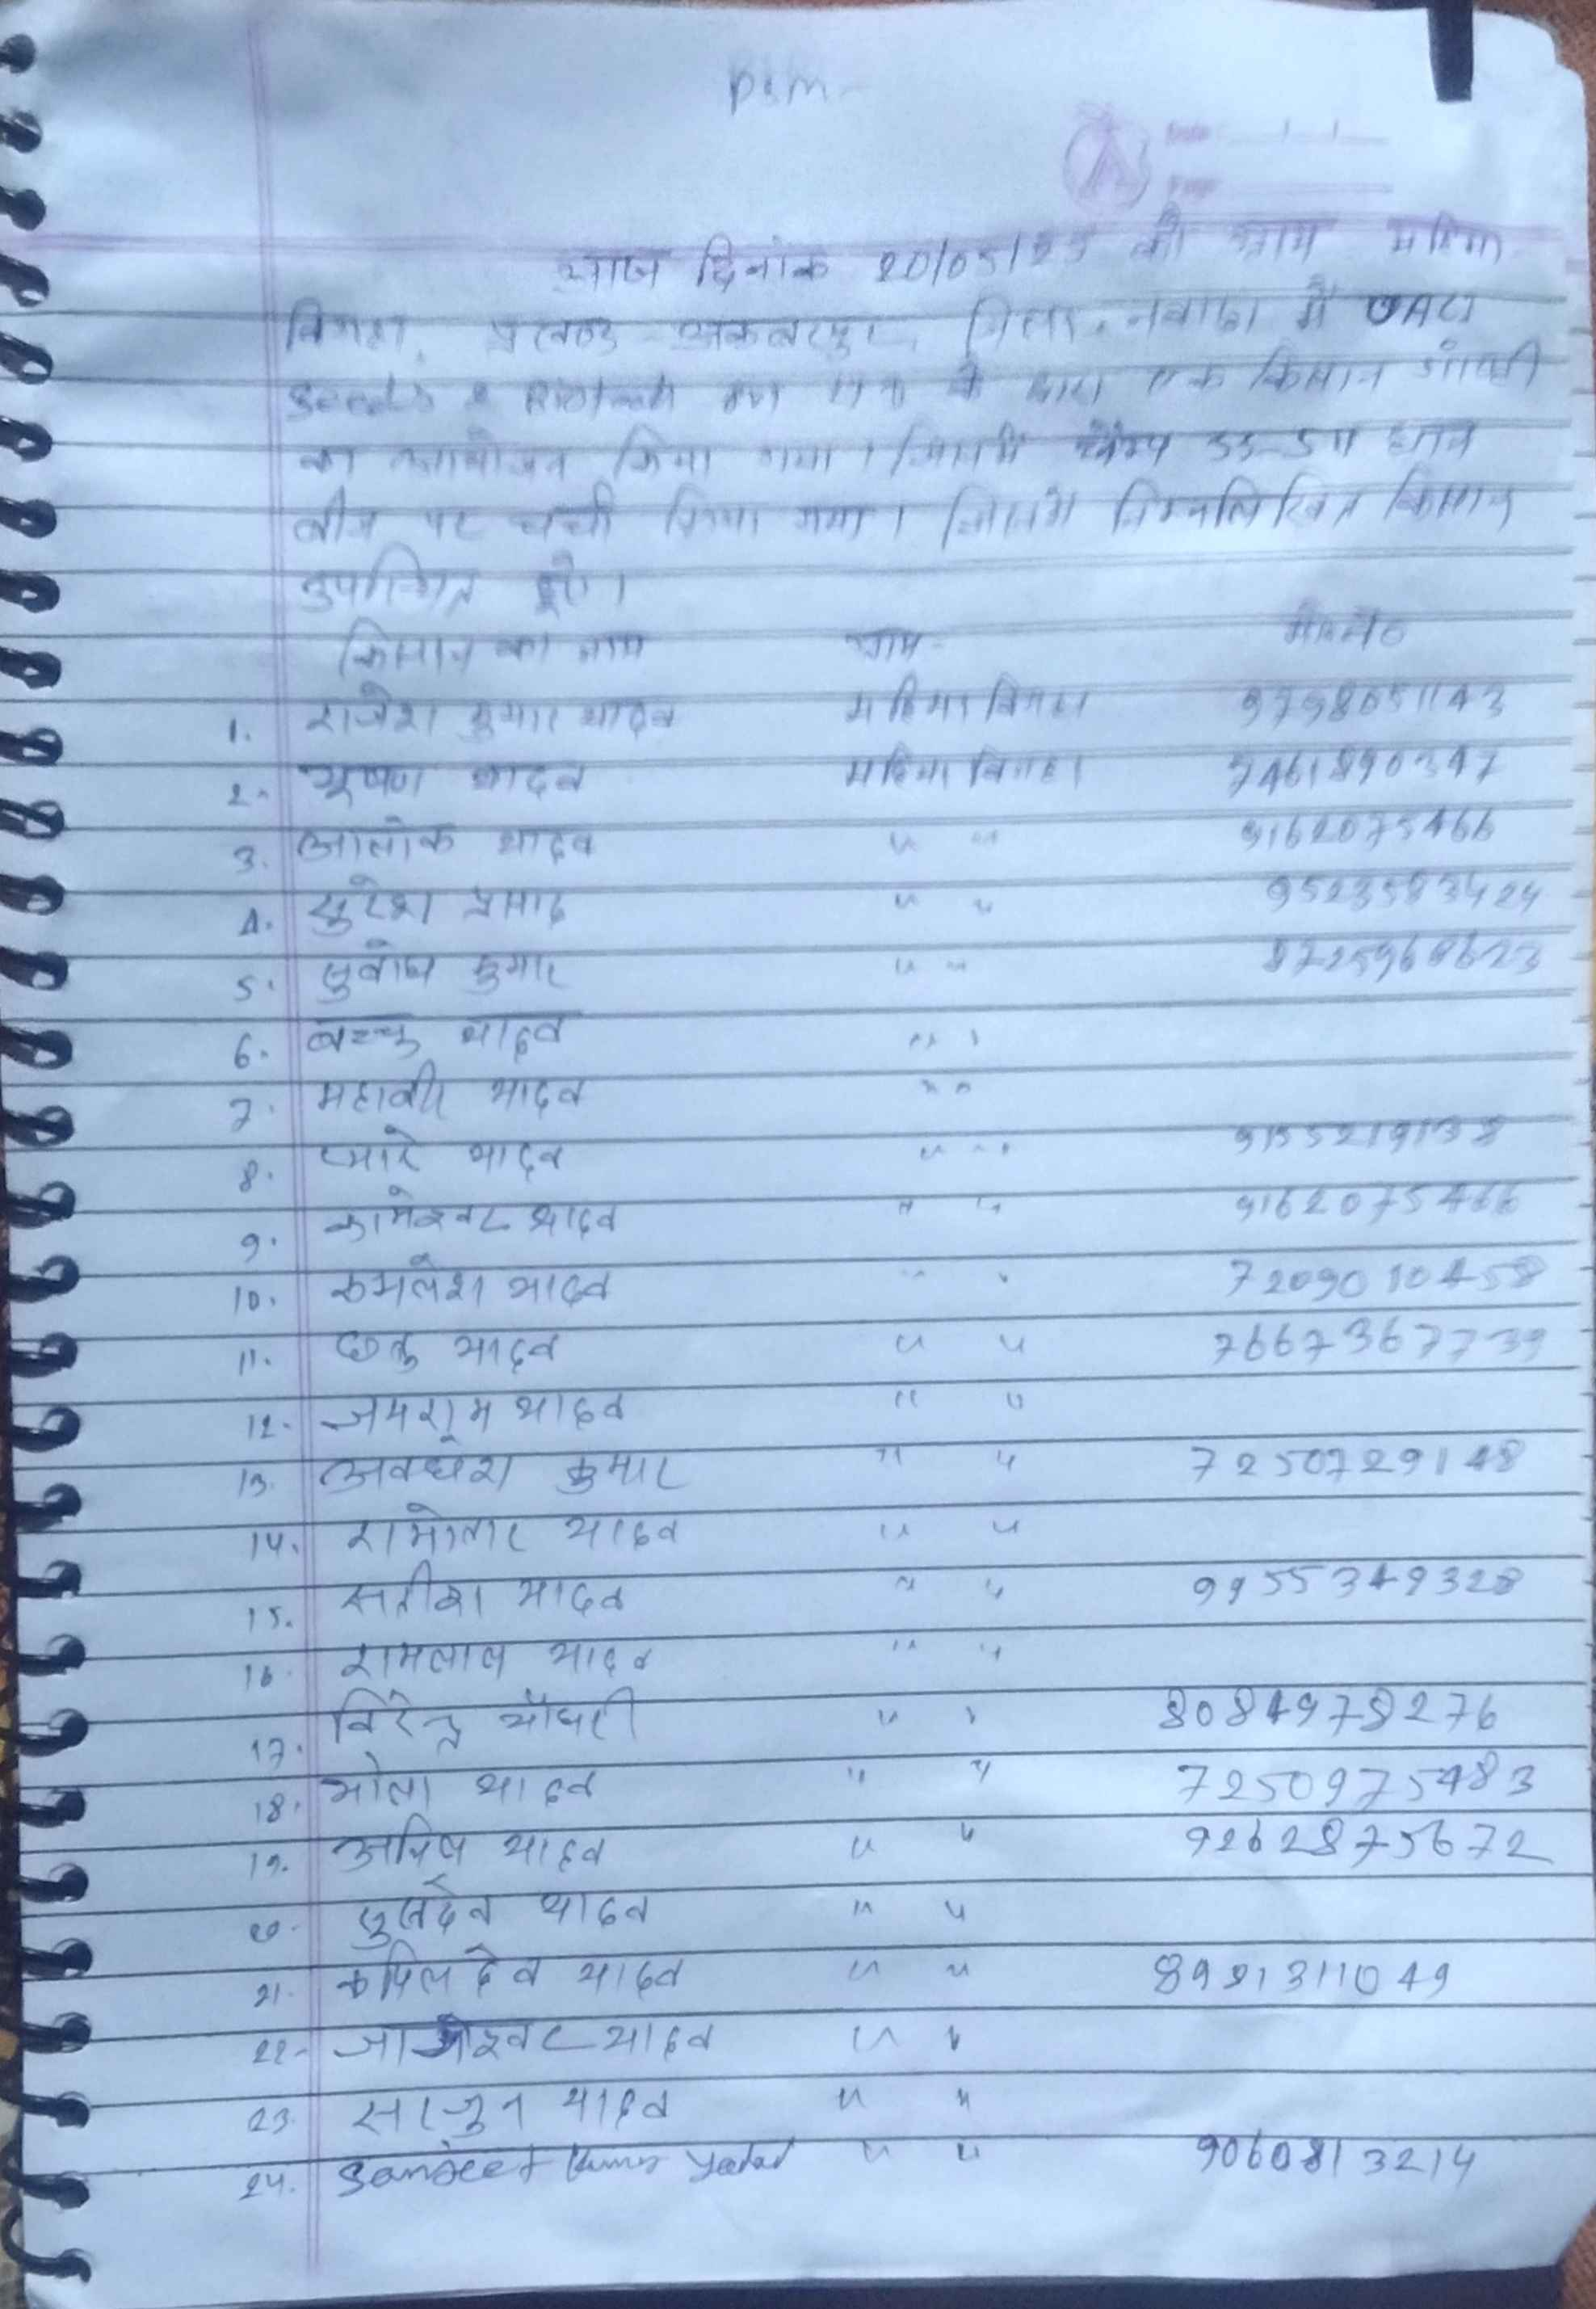 PSM
आज दिनांक 20/05/25 को ग्राम महिमा
बिगहा, प्रखण्ड - अकबरपुर, जिला - नवादा में
Seeds & के द्वारा एक किसान गोष्ठी
का आयोजन किया गया। जिसमें 55-5 धान
बीज पर चर्चा किया गया। जिसमें निम्नलिखित किसान
उपस्थित हुए।
किसान का नाम ग्राम - मो०नं०
1. राजेश कुमार यादव महिमा बिगहा 9798051143
2. भूषण यादव महिमा बिगहा 7461890347
3. आलोक यादव " " 9162075466
4. सुरेश प्रसाद " " 9523583424
5. सुबोध कुमार " "
6. यादव " "
7. महावीर यादव " "
8. प्यारे यादव " " 9155219138
9. कामेश्वर यादव " " 9162075466
10. कमलेश यादव " " 7209010458
11. छोटु यादव " " 7667367739
12. जयराम यादव " "
13. अवधेश कुमार " " 7250729148
14. रामोतार यादव " "
15. सतीश यादव " " 9955349328
16. रामलाल यादव " "
17. विरेन्द्र चौधरी " " 8084978276
18. भोला यादव " " 7250975483
19. यादव " " 9262875672
20. सुखदेव यादव " "
21. कपिल देव यादव " "
22. यादव " "
23. यादव " "
24. Sanjeet Kumar Yadav " " 9060813214